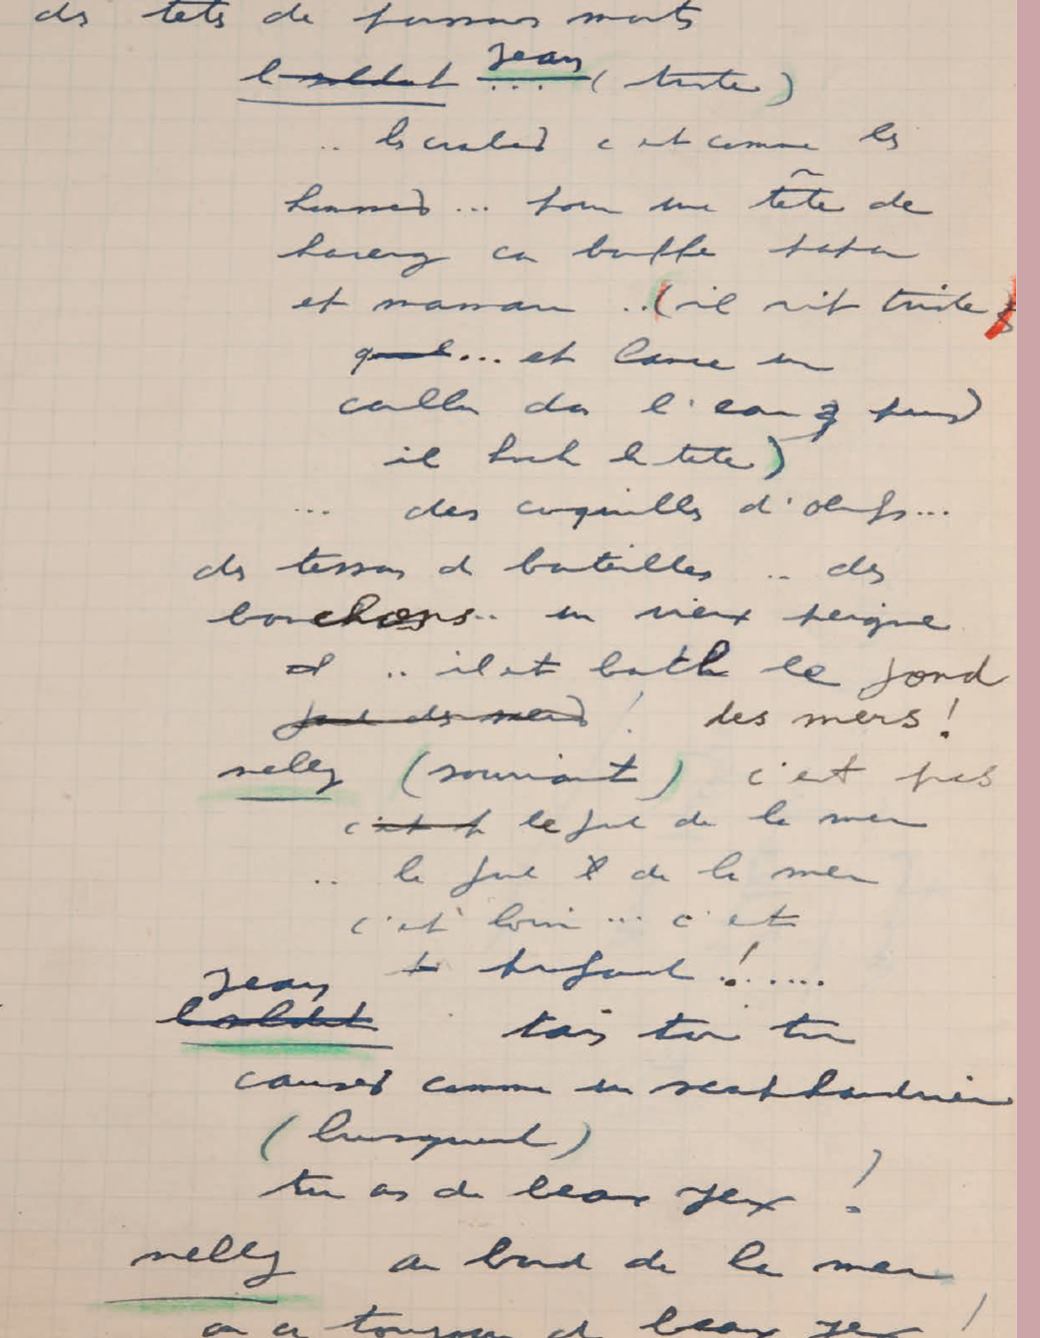 des tets de poissons morts
le soldat Jean ... (triste)
.. les crabes c est comme les
hommes ... pour une tête de
hareng ca bouffe papa
et maman .. (il rit triste)
... et lance un
caillu ds l'eau puis
il hoch la tete)
... des coquilles d'oeufs...
ds tessons d bouteilles .. des
bouchons .. un vieux peigne
.. il est bath le fond
fond des mers ! des mers !
nelly (souriant) c'est pas
c'est p le fond de la mer
.. le fond de la mer
c'est loin ... c'est
profond ! .....
Jean
le soldat tais toi tu
causes comme un scaphandrier
(brusquement)
tu as de beaux yeux !
nelly au bord de la mer
on a toujours d beaux yeux !